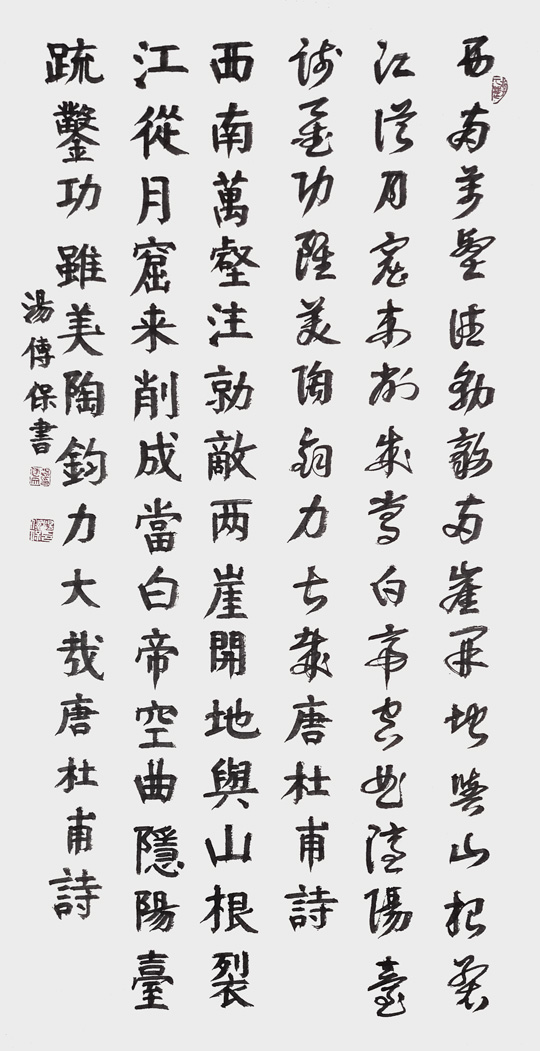 西南萬壑注勍敵两崖開地與山根裂
江從月窟来削成當白帝空曲隱陽臺
疏鑿功雖美陶鈞力大哉唐杜甫詩
西南萬壑注勍敵两崖開地與山根裂
江從月窟来削成當白帝空曲隱陽臺
疏鑿功雖美陶鈞力大哉唐杜甫詩
湯傳保書